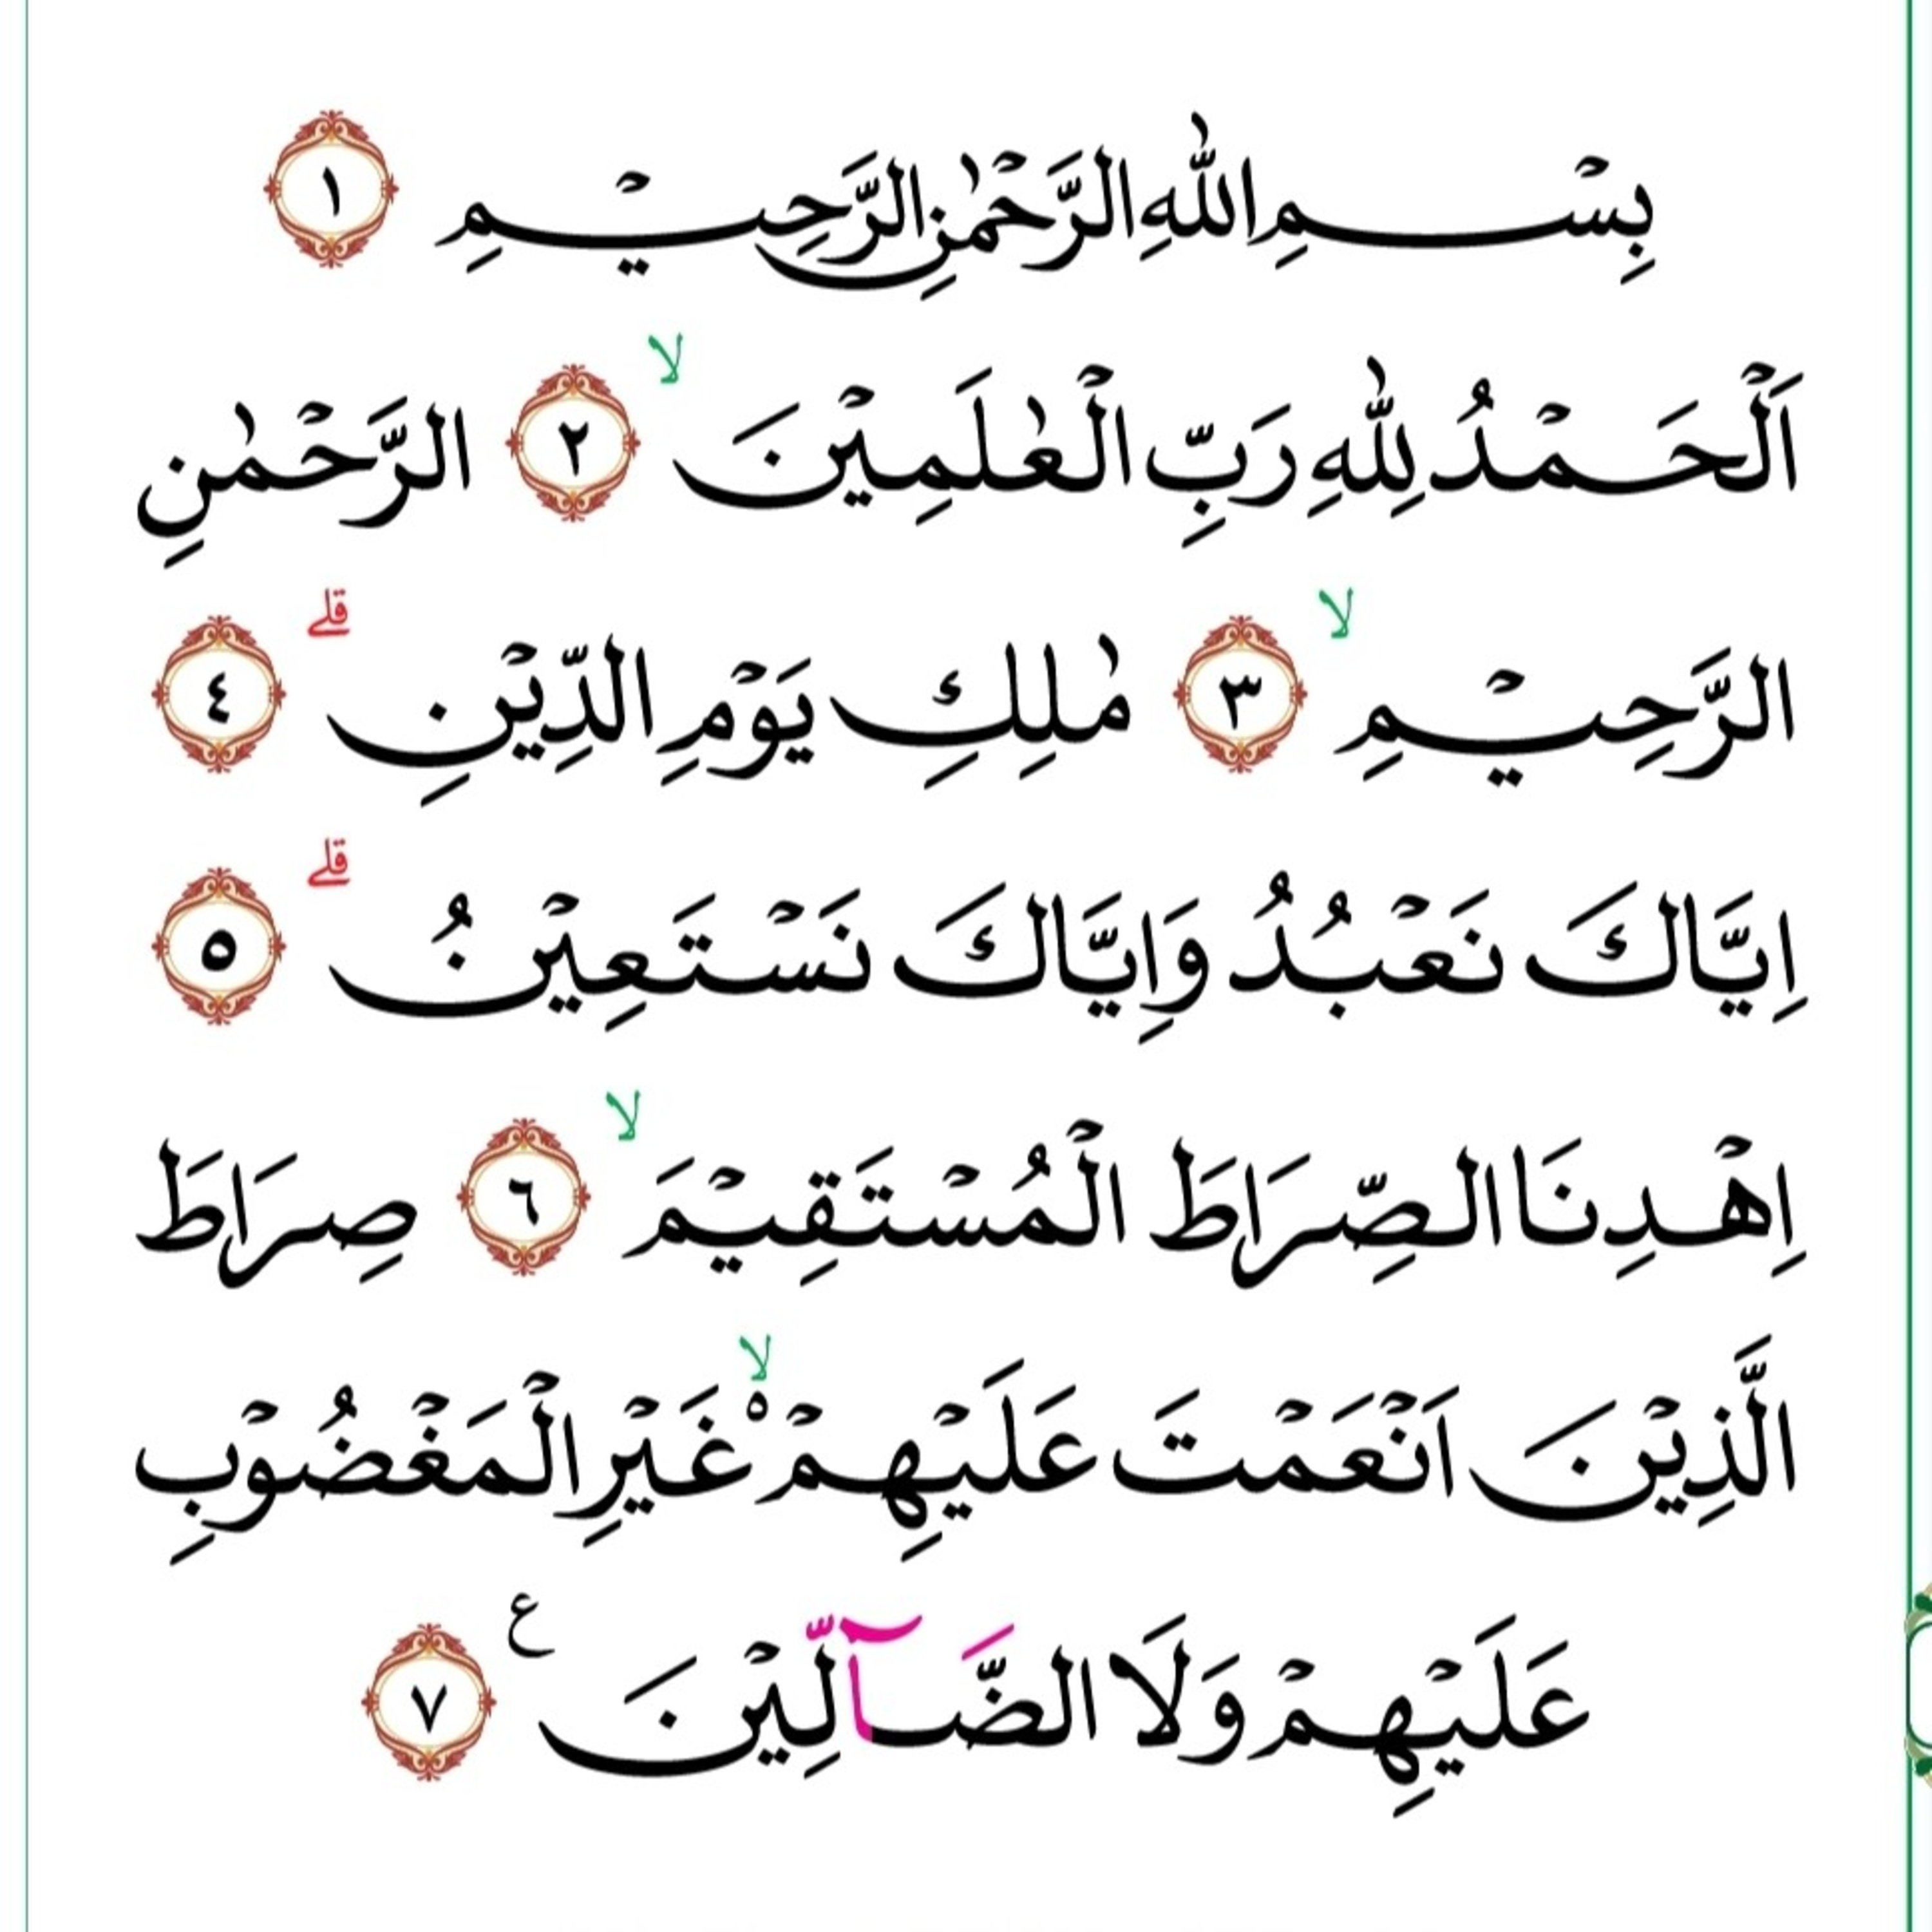 بِسْمِ اللّٰهِ الرَّحْمٰنِ الرَّحِيْمِ ١
اَلْحَمْدُ لِلّٰهِ رَبِّ الْعٰلَمِيْنَ ۙ ٢ الرَّحْمٰنِ
الرَّحِيْمِ ۙ ٣ مٰلِكِ يَوْمِ الدِّيْنِ ۗ ٤
اِيَّاكَ نَعْبُدُ وَاِيَّاكَ نَسْتَعِيْنُ ۗ ٥
اِهْدِنَا الصِّرَاطَ الْمُسْتَقِيْمَ ۙ ٦ صِرَاطَ
الَّذِيْنَ اَنْعَمْتَ عَلَيْهِمْ ەۙ غَيْرِ الْمَغْضُوْبِ
عَلَيْهِمْ وَلَا الضَّاۤلِّيْنَ ࣖ ٧